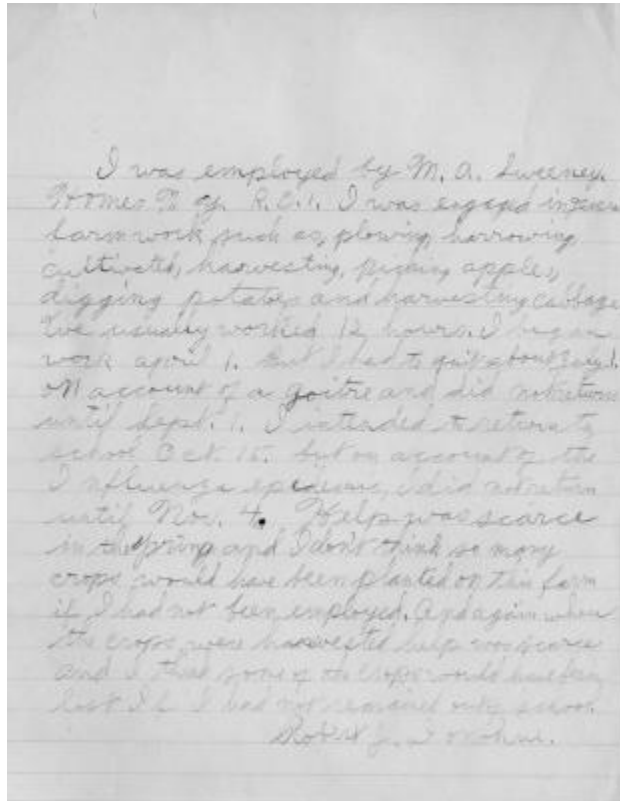 I was employed by M. A. Sweeney.
Homer N. Y. R.C.1. I was engaged in
farm work such as, plowing, harrowing
cultivated, harvesting, picking apples,
digging potatoes and harvesting cabbage
We usually worked 12 hours. I began
work april 1. But I had to quit about July 1.
on account of a goitre and did not return
until Sept. 1. I intended to return to
school Oct. 15. but on account of the
Influenza epidemic, I did not return
until Nov. 4. Help was scarce
in the spring and I don't think so many
crops would have been planted on this farm
if I had not been employed. And again when
the crops were harvested help was scarce
and I think some of the crops would have been
lost if I had not remained out of school.
Robert J.